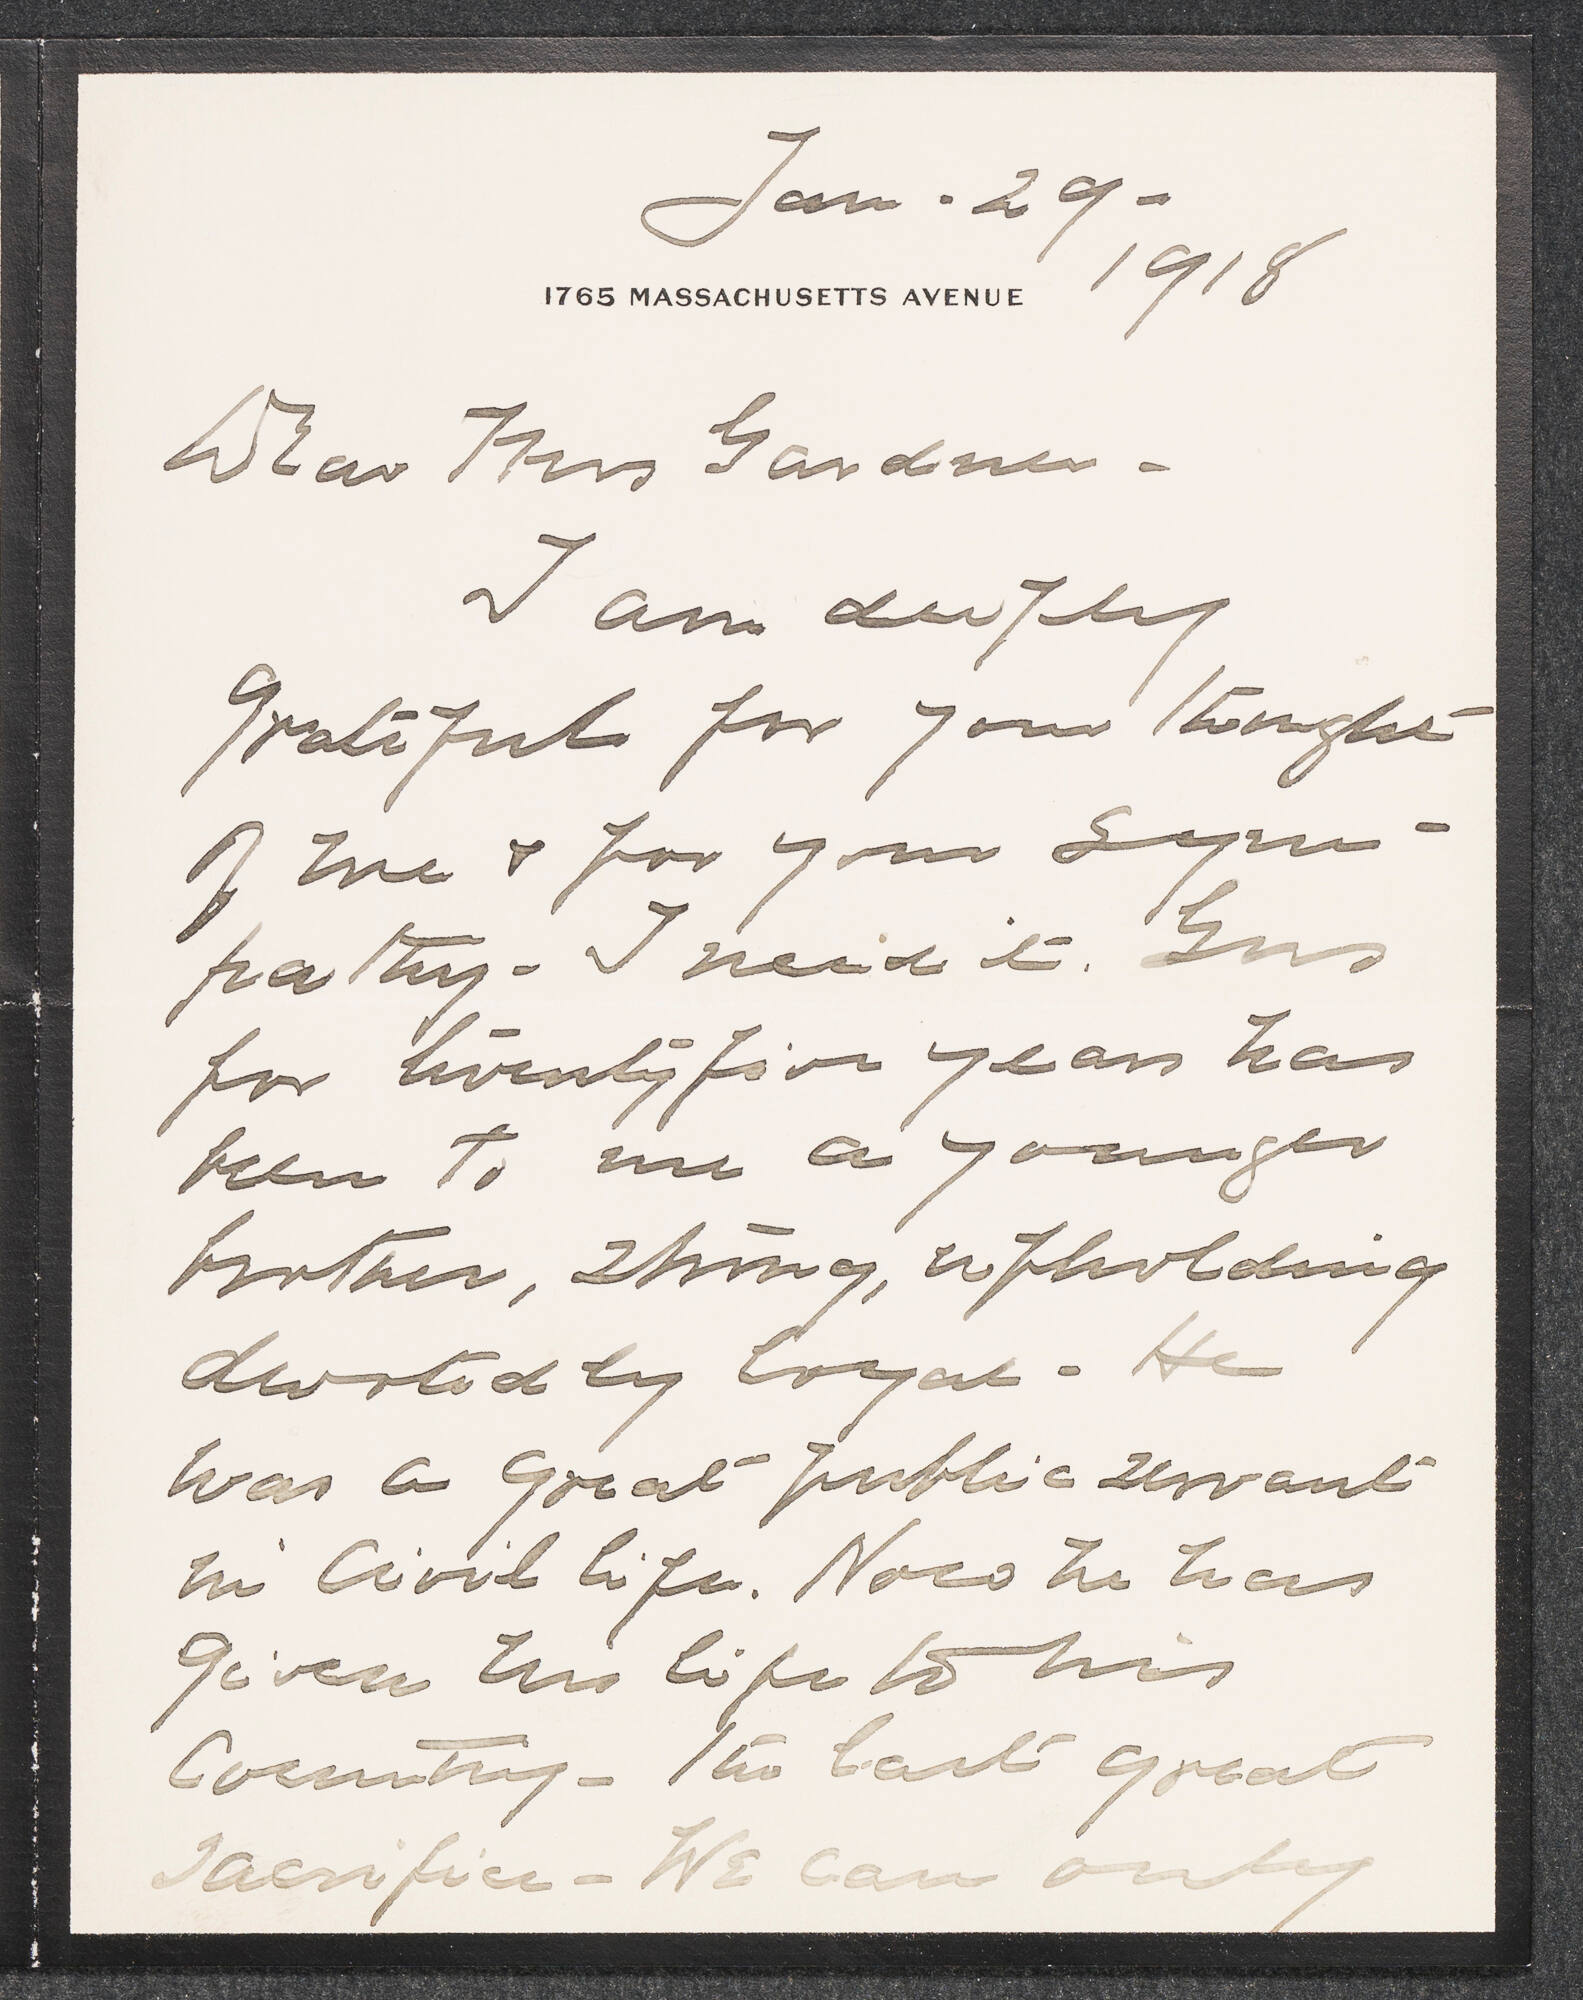 Jan. 29-
1918
1765 MASSACHUSETTS AVENUE
Dear Mrs Gardner -
I am deeply
grateful for your thought
of me & for your sym-
pathy - I need it. Gus
for twenty five years has
been to me a younger
brother, strong, upholding
devotedly loyal - He
was a great public servant
in civil life. Now he has
given his life to his
Country - the last great
sacrifice - We can only